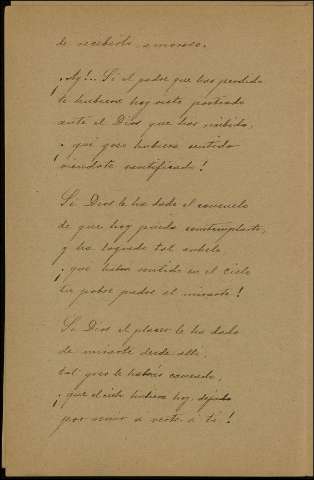 de recibirlo amoroso.
¡Ay!.. Si el padre que has perdido
te hubiera hoy visto postrado
ante el Dios que has recibido,
¡qué gozo hubiera sentido
viéndote santificado!
Si Dios le ha dado el consuelo
de que hoy pueda contemplarte,
y ha logrado tal anhelo
¡que habrá sentido en el cielo
tu pobre padre al mirarte!
Si Dios el placer le ha dado
de mirarte desde allí,
tal gozo le habrá causado,
¡que el cielo hubiera hoy dejado
por venir a verte a ti!